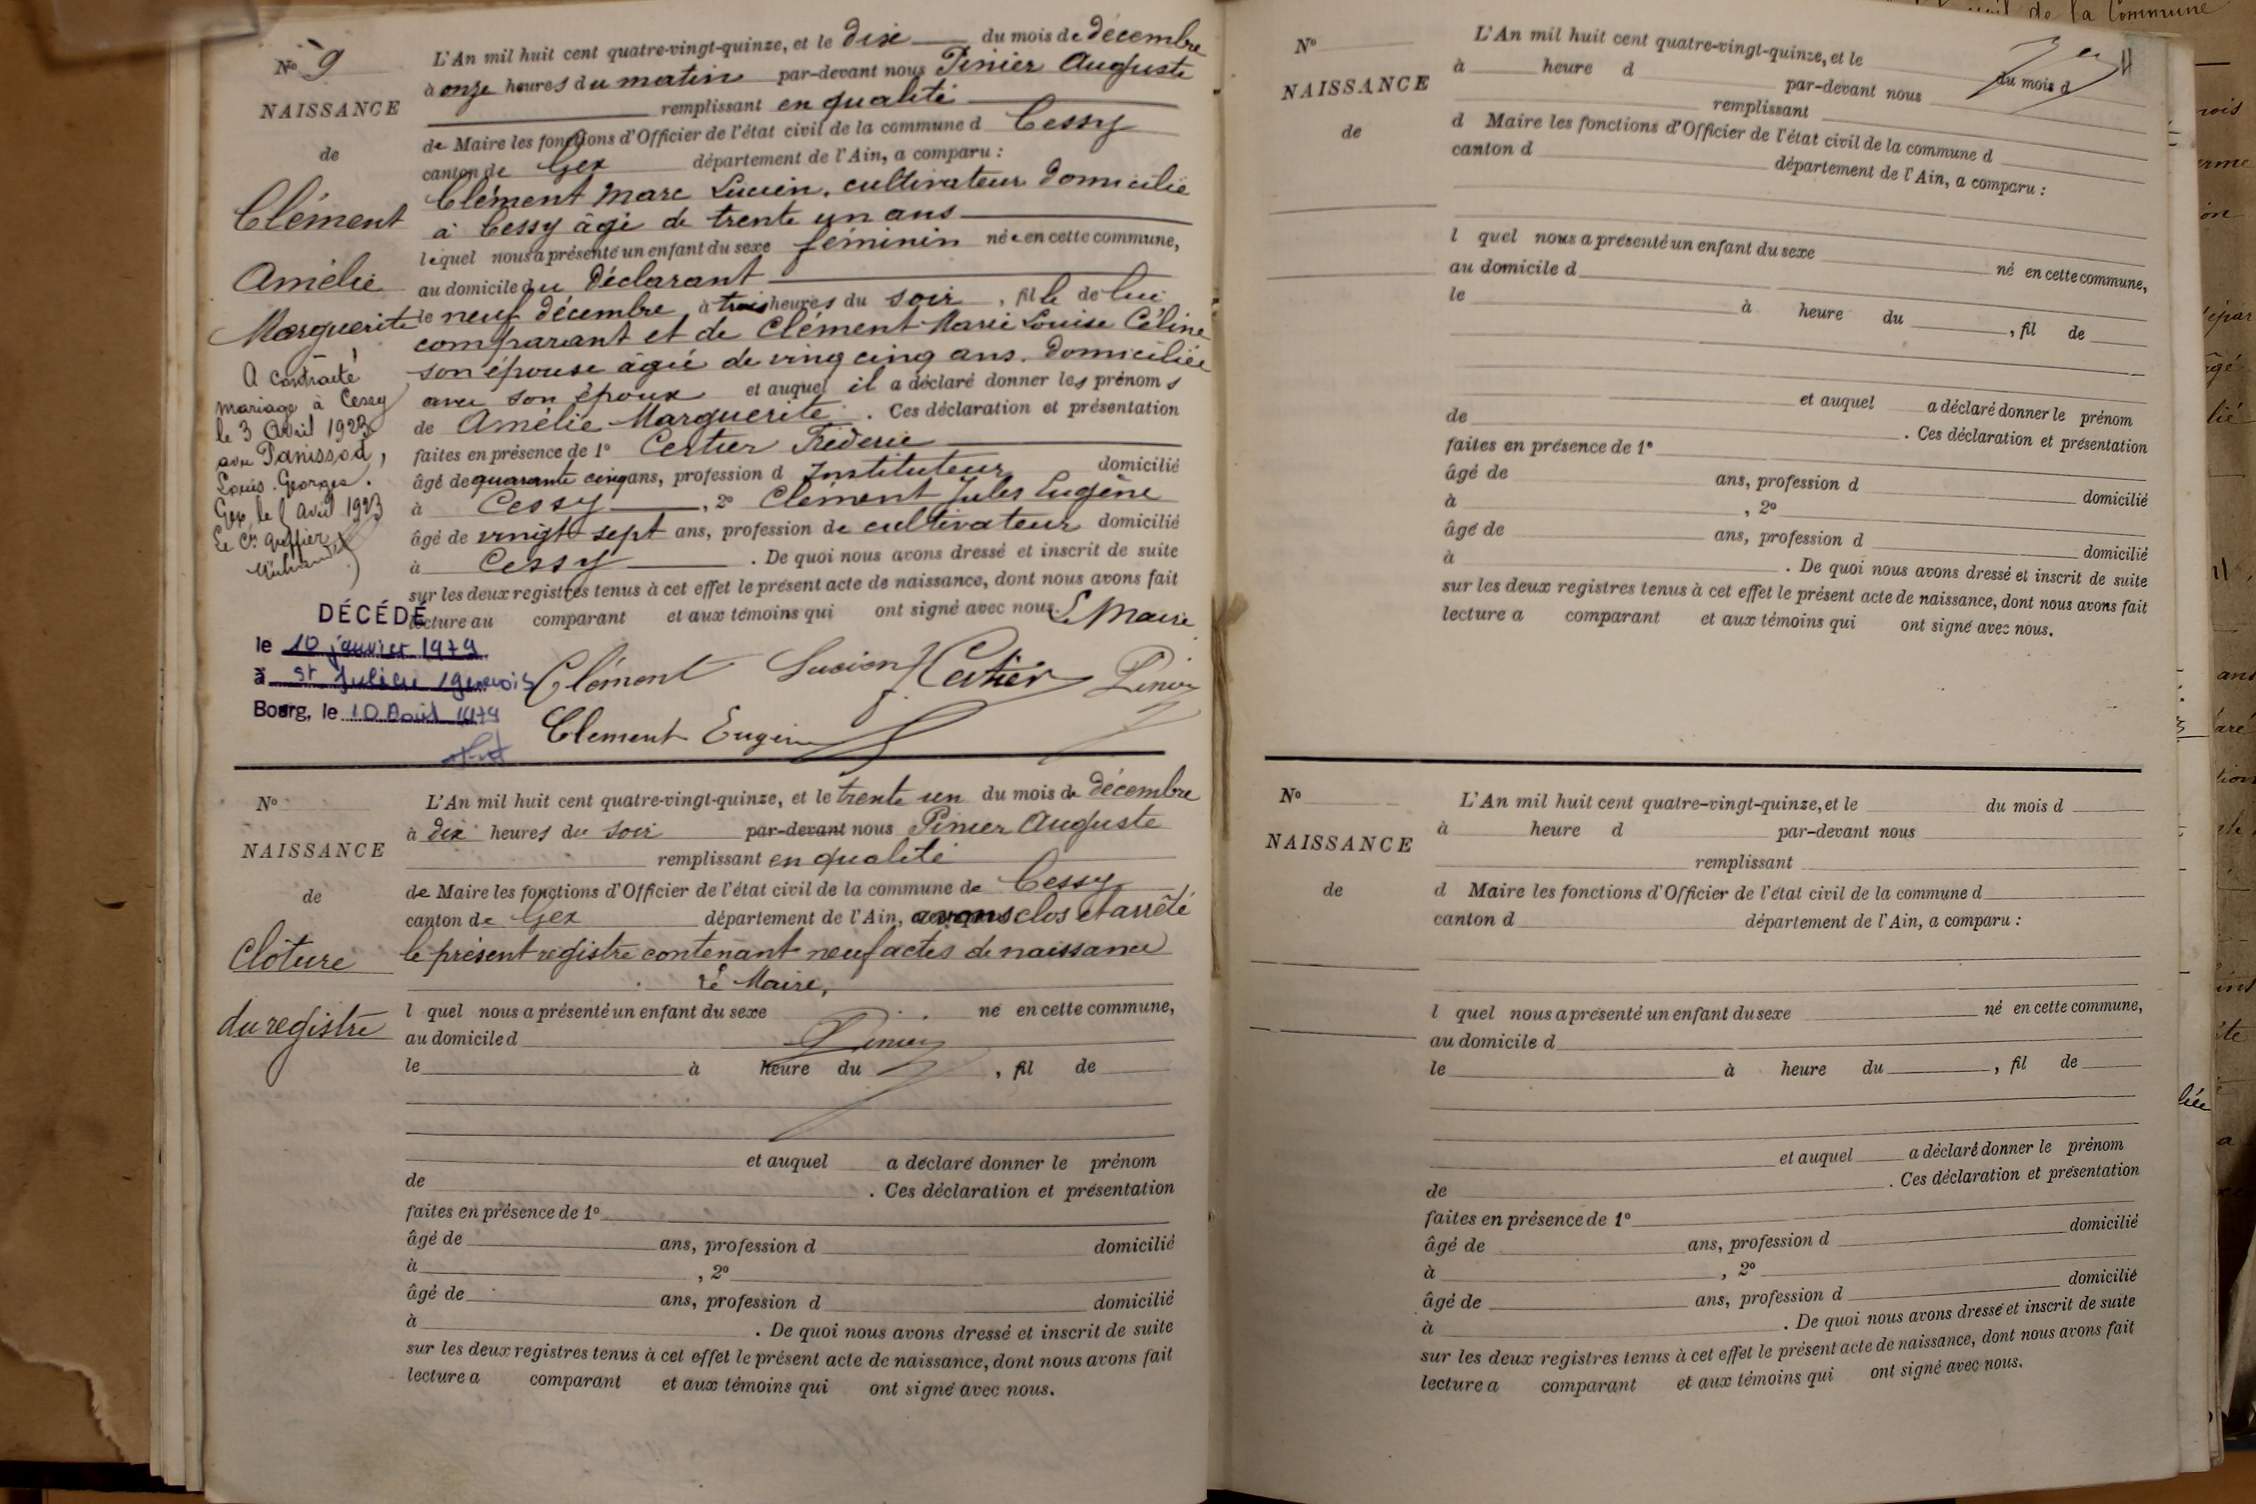 Nº 9
NAISSANCE
de
Clément
Amélie
Marguerite
A contracté
mariage à Cessy
le 3 Avril 1923
avec Panissod,
Louis-Georges.
Gex, le Avril 1923
Le Cⁱˢ Greffier
DÉCÉDÉ
le 10 janvier 1979
à St Julien / genevois
Bourg, le 10 Août 1979
L'An mil huit cent quatre-vingt-quinze, et le dix du mois de décembre
à onze heures du matin par-devant nous Pinier Auguste
remplissant en qualité
de Maire les fonctions d'Officier de l'état civil de la commune d Cessy
canton de Gex département de l'Ain, a comparu :
Clément Marc Lucien, cultivateur domicilié
à Cessy âgé de trente un ans
lequel nous a présenté un enfant du sexe féminin née en cette commune,
au domicile du Déclarant
le neuf décembre à trois heures du soir, fille de lui
comparant et de Clément Marie Louise Céline
son épouse âgée de ving cinq ans. domiciliée
avec son époux et auquel il a déclaré donner les prénoms
de Amélie Marguerite. Ces déclaration et présentation
faites en présence de 1º Certier Fréderic
âgé de quarante cinq ans, profession d Instituteur domicilié
à Cessy, 2º Clément Jules Eugène
âgé de vingt-sept ans, profession de cultivateur domicilié
à Cessy. De quoi nous avons dressé et inscrit de suite
sur les deux registres tenus à cet effet le présent acte de naissance, dont nous avons fait
lecture au comparant et aux témoins qui ont signé avec nous. Le Maire
Clément Lucien F Certier Pinier
Clément Eugène
Nº
NAISSANCE
de
Clôture
du registre
L'An mil huit cent quatre-vingt-quinze, et le trente un du mois de décembre
à dix heures du soir par-devant nous Pinier Auguste
remplissant en qualité
de Maire les fonctions d'Officier de l'état civil de la commune de Cessy
canton de Gex département de l'Ain, avons clos et arrêté
le présent registre contenant neuf actes de naissance
Le Maire,
l quel nous a présenté un enfant du sexe né en cette commune,
au domicile d Pinier
le à heure du , fil de
et auquel a déclaré donner le prénom
de . Ces déclaration et présentation
faites en présence de 1º
âgé de ans, profession d domicilié
à , 2º
âgé de ans, profession d domicilié
à . De quoi nous avons dressé et inscrit de suite
sur les deux registres tenus à cet effet le présent acte de naissance, dont nous avons fait
lecture a comparant et aux témoins qui ont signé avec nous.
Nº
NAISSANCE
de
L'An mil huit cent quatre-vingt-quinze, et le du mois d
à heure d par-devant nous
remplissant
d Maire les fonctions d'Officier de l'état civil de la commune d
canton d département de l'Ain, a comparu :
l quel nous a présenté un enfant du sexe né en cette commune,
au domicile d
le à heure du , fil de
et auquel a déclaré donner le prénom
de . Ces déclaration et présentation
faites en présence de 1º
âgé de ans, profession d domicilié
à , 2º
âgé de ans, profession d domicilié
à . De quoi nous avons dressé et inscrit de suite
sur les deux registres tenus à cet effet le présent acte de naissance, dont nous avons fait
lecture a comparant et aux témoins qui ont signé avec nous.
Nº
NAISSANCE
de
L'An mil huit cent quatre-vingt-quinze, et le du mois d
à heure d par-devant nous
remplissant
d Maire les fonctions d'Officier de l'état civil de la commune d
canton d département de l'Ain, a comparu :
l quel nous a présenté un enfant du sexe né en cette commune,
au domicile d
le à heure du , fil de
et auquel a déclaré donner le prénom
de . Ces déclaration et présentation
faites en présence de 1º
âgé de ans, profession d domicilié
à , 2º
âgé de ans, profession d domicilié
à . De quoi nous avons dressé et inscrit de suite
sur les deux registres tenus à cet effet le présent acte de naissance, dont nous avons fait
lecture a comparant et aux témoins qui ont signé avec nous.
de la Commune